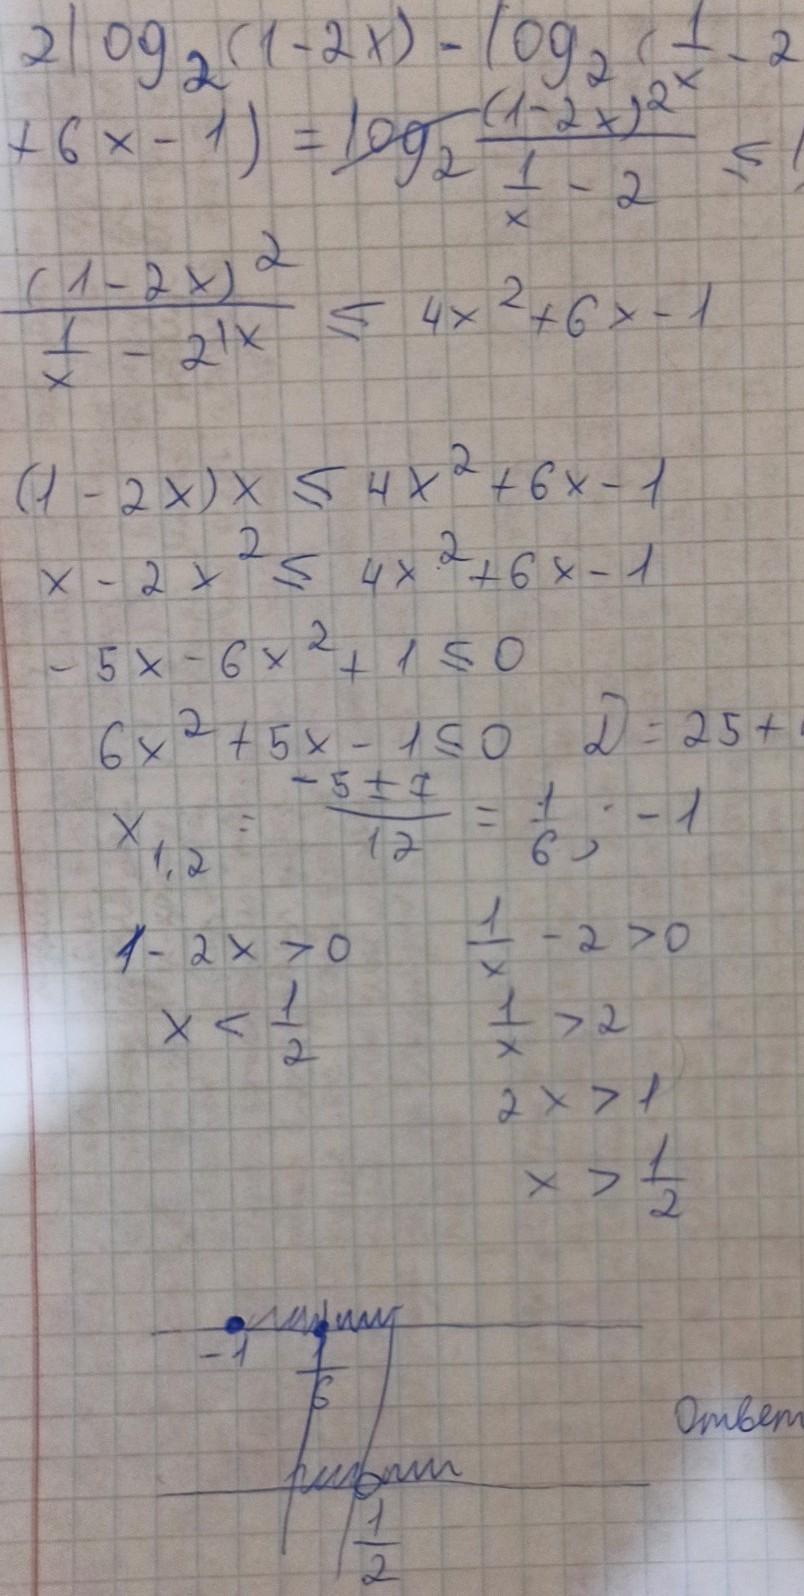 2log₂(1-2x) - log₂(1/x - 2
+6x-1) = log₂ (1-2x)²/(1/x - 2) ≤
(1-2x)²/(1/x - 2) ≤ 4x²+6x-1
(1-2x)x ≤ 4x²+6x-1
x-2x² ≤ 4x²+6x-1
-5x-6x²+1≤0
6x²+5x-1≤0 D=25+
x₁,₂ = (-5±7)/12 = 1/6; -1
1-2x>0 1/x - 2>0
x < 1/2 1/x > 2
2x>1
x > 1/2
-1 1/6
Ответ
1/2